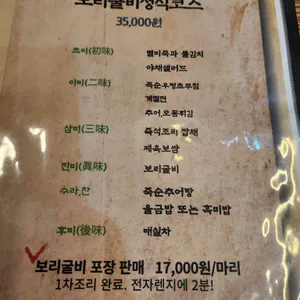 보리굴비정식코스
35,000원
초미(初味) 별미죽과 물김치
야채샐러드
이미(二味) 죽순우렁초무침
계절전
추어,모둠튀김
삼미(三味) 즉석조리 잡채
제육보쌈
진미(眞味) 보리굴비
수라,찬 죽순추어탕
울금밥 또는 흑미밥
후미(後味) 매실차
보리굴비 포장 판매 17,000원/마리
1차조리 완료. 전자렌지에 2분!